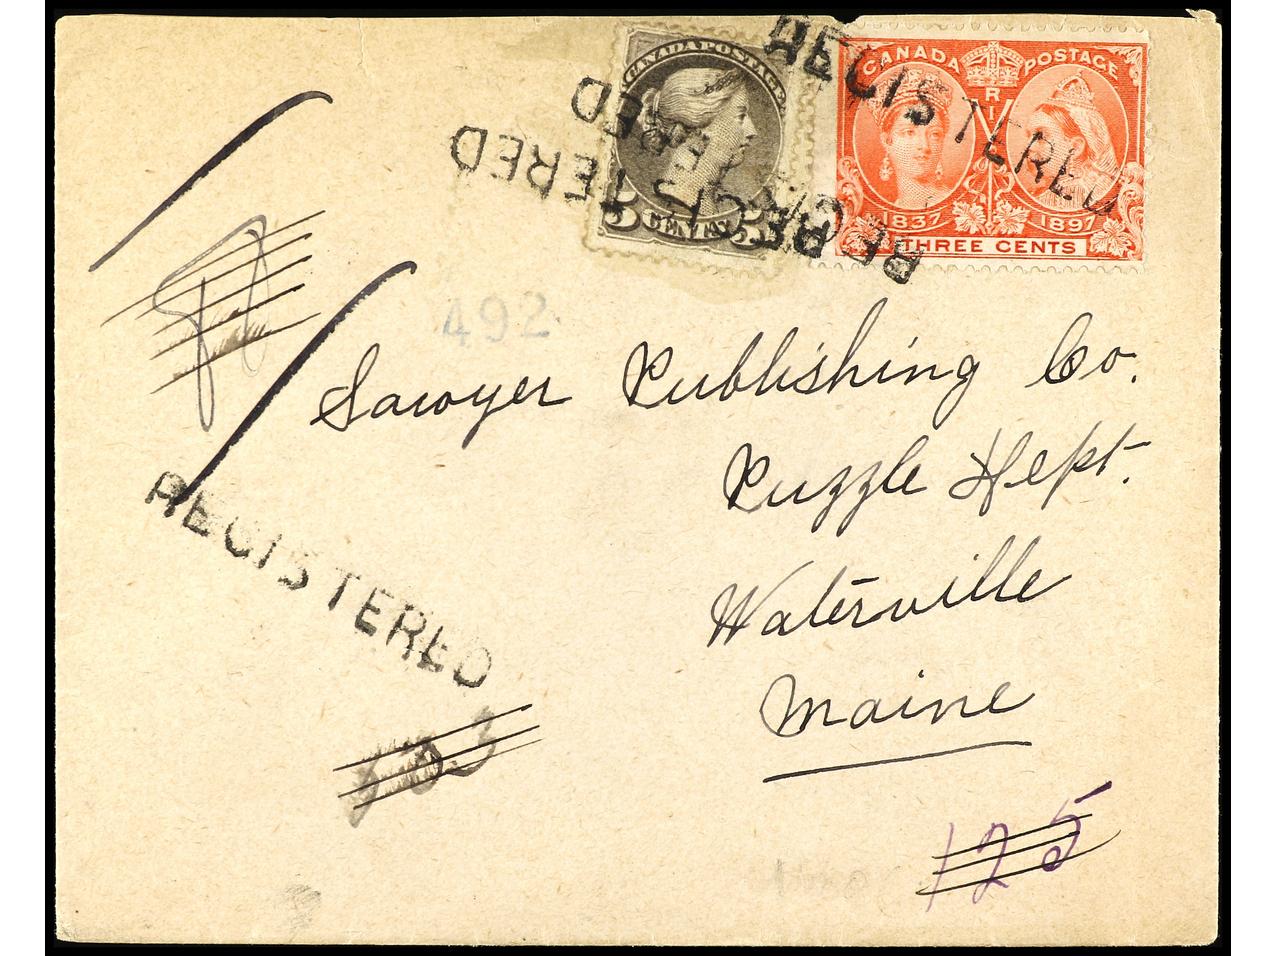 CANADA POSTAGE
5 CENTS 5
CANADA POSTAGE
1837 1897
THREE CENTS
REGISTERED
REGISTERED
492
Sawyer Publishing Co.
Puzzle Dept.
Waterville
Maine
REGISTERED
125